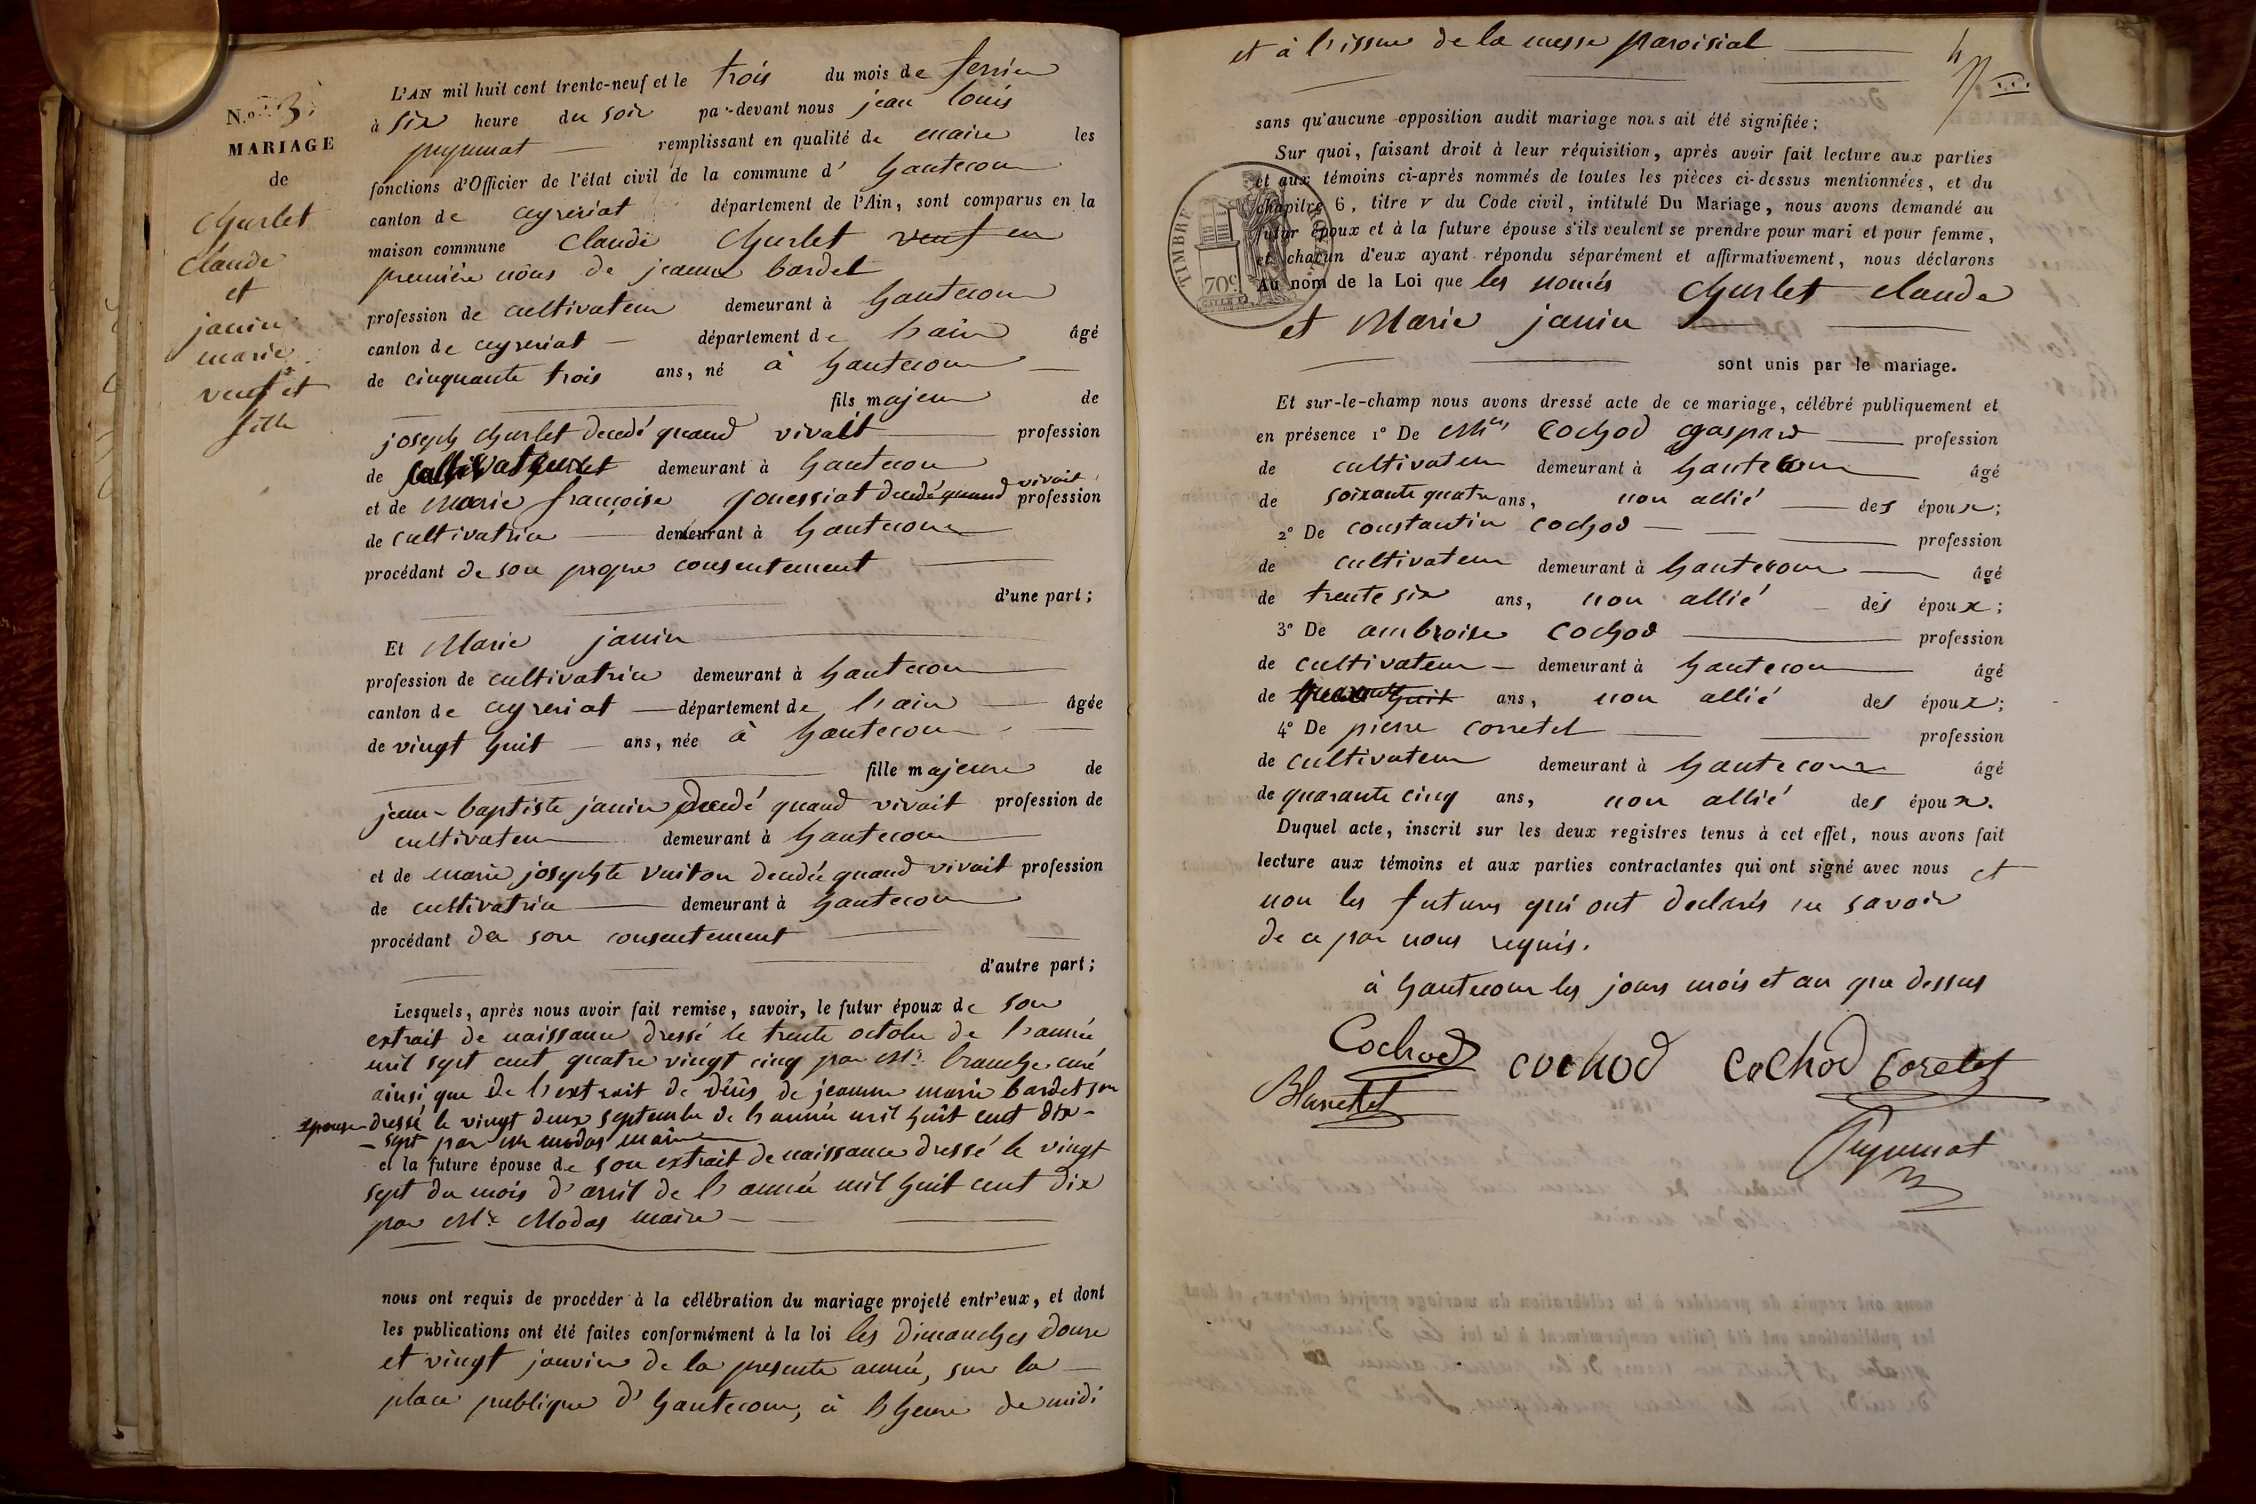 N.o 3.
MARIAGE
de
Churlet
Claude
et
janin
marie
veuf et
fille
L'AN mil huit cent trente-neuf et le trois du mois de fevrier
à six heure du soir par-devant nous jean louis
puyumat remplissant en qualité de maire les
fonctions d'Officier de l'état civil de la commune d' hautecour
canton de ceyzeriat département de l'Ain, sont comparus en la
maison commune Claude Churlet veuf en
première nôus de jeanne bardet
profession de cultivateur demeurant à hautecour
canton de ceyzeriat département de l'ain âgé
de cinquante trois ans, né à hautecour
fils majeur de
joseph churlet decedé quand vivait profession
de cultivateur demeurant à hautecour
et de marie françoise gonessiat decedé quand vivait profession
de cultivatrice demeurant à hautecour
procédant de son propre consentement
d'une part;
Et Marie janin
profession de cultivatrice demeurant à hautecour
canton de ceyzeriat département de l'ain âgée
de vingt huit ans, née à hautecour
fille majeure de
jean-baptiste janin decedé quand vivait profession de
cultivateur demeurant à hautecour
et de marie josephte vuiton decedée quand vivait profession
de cultivatrice demeurant à hautecour
procédant de son consentement
d'autre part;
Lesquels, après nous avoir fait remise, savoir, le futur époux de son
extrait de naissance dressé le trente octobre de l'année
mil sept cent quatre vingt cinq par Mr. branche curé
ainsi que de l'extrait de décès de jeanne marie bardet son
epouse dressé le vingt deux septembre de l'année mil huit cent dix-
-sept par mr modas maire
et la future épouse de son extrait de naissance dressé le vingt
sept du mois d'avril de l'année mil huit cent dix
par Mr. Modas maire
nous ont requis de procéder à la célébration du mariage projeté entr'eux, et dont
les publications ont été faites conformément à la loi les dimanches douze
et vingt janvier de la presente année, sur la
place publique d'hautecour, à l'heure de midi
et à l'issue de la messe paroisial
sans qu'aucune opposition audit mariage nous ait été signifiée;
Sur quoi, faisant droit à leur réquisition, après avoir fait lecture aux parties
et aux témoins ci-après nommés de toutes les pièces ci-dessus mentionnées, et du
chapitre 6, titre V du Code civil, intitulé Du Mariage, nous avons demandé au
futur époux et à la future épouse s'ils veulent se prendre pour mari et pour femme,
et chacun d'eux ayant répondu séparément et affirmativement, nous déclarons
Au nom de la Loi que les només Churlet Claude
et Marie janin
TIMBRE ROYAL
70c
sont unis par le mariage.
Et sur-le-champ nous avons dressé acte de ce mariage, célébré publiquement et
en présence 1° De Mrs Cochod gaspard profession
de cultivateur demeurant à hautecour âgé
de soixante quatre ans, non allié des époux;
2° De constantin cochod profession
de cultivateur demeurant à hautecour âgé
de trente six ans, non allié des époux;
3° De ambroise Cochod profession
de cultivateur demeurant à hautecour âgé
de huit ans, non allié des époux;
4° De pierre corretel profession
de cultivateur demeurant à hautecour âgé
de quarante cinq ans, non allié des époux.
Duquel acte, inscrit sur les deux registres tenus à cet effet, nous avons fait
lecture aux témoins et aux parties contractantes qui ont signé avec nous et
non les futurs qui ont declarés ne savoir
de ce par nous requis.
à hautecour les jours mois et an que dessus
Cochod cochod cochod Coretel
Puyumat